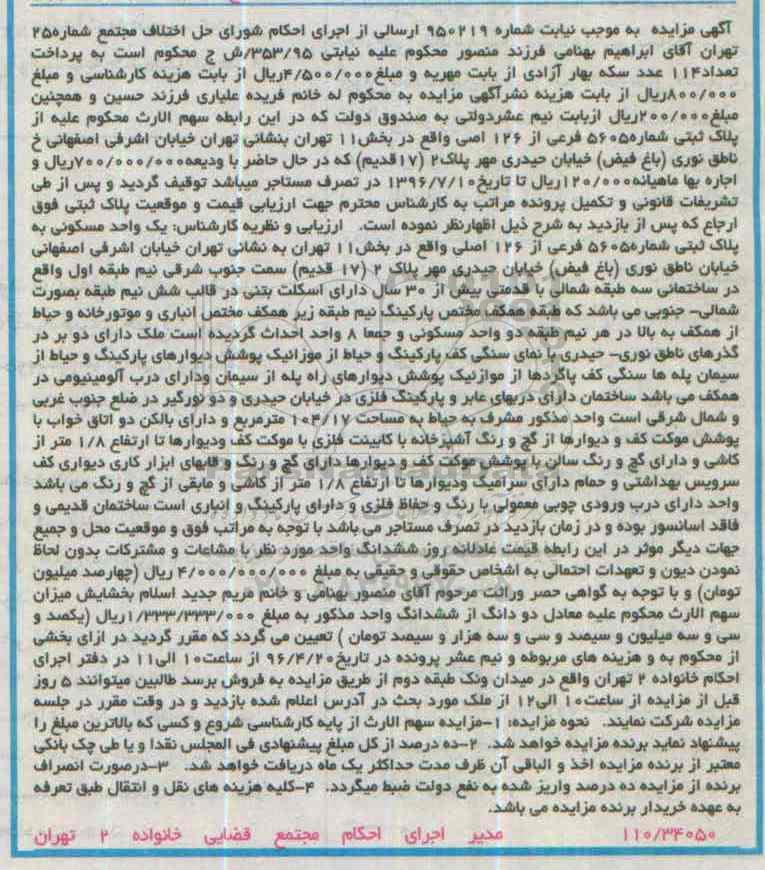 آگهی مزایده به موجب نیابت شماره ۹۵۰۲۱۹ ارسالی از اجرای احکام شورای حل اختلاف مجتمع شماره۲۵
تهران آقای ابراهیم بهنامی فرزند منصور محکوم علیه نیابتی ۳۵۳/۹۵/ش ج محکوم است به پرداخت
تعداد۱۱۴ عدد سکه بهار آزادی از بابت مهریه و مبلغ۴/۵۰۰/۰۰۰ریال از بابت هزینه کارشناسی و مبلغ
۸۰۰/۰۰۰ریال از بابت هزینه نشرآگهی مزایده به محکوم له خانم فریده علیاری فرزند حسین و همچنین
مبلغ۲۰۰/۰۰۰ریال ازبابت نیم عشردولتی به صندوق دولت که در این رابطه سهم الارث محکوم علیه از
پلاک ثبتی شماره۵۶۰۵ فرعی از ۱۲۶ اصی واقع در بخش۱۱ تهران بنشانی تهران خیابان اشرفی اصفهانی خ
ناطق نوری (باغ فیض) خیابان حیدری مهر پلاک۲ (۱۷قدیم) که در حال حاضر با ودیعه۷۰۰/۰۰۰/۰۰۰ریال و
اجاره بها ماهیانه۱۲۰/۰۰۰ریال تا تاریخ۱۳۹۶/۷/۱۰ در تصرف مستاجر میباشد توقیف گردید و پس از طی
تشریفات قانونی و تکمیل پرونده مراتب به کارشناس محترم جهت ارزیابی قیمت و موقعیت پلاک ثبتی فوق
ارجاع که پس از بازدید به شرح ذیل اظهارنظر نموده است. ارزیابی و نظریه کارشناس: یک واحد مسکونی به
پلاک ثبتی شماره۵۶۰۵ فرعی از ۱۲۶ اصلی واقع در بخش۱۱ تهران به نشانی تهران خیابان اشرفی اصفهانی
خیابان ناطق نوری (باغ فیض) خیابان حیدری مهر پلاک ۲ (۱۷ قدیم) سمت جنوب شرقی نیم طبقه اول واقع
در ساختمانی سه طبقه شمالی با قدمتی بیش از ۳۰ سال دارای اسکلت بتنی در قالب شش نیم طبقه بصورت
شمالی- جنوبی می باشد که طبقه همکف مختص پارکینگ نیم طبقه زیر همکف مختص انباری و موتورخانه و حیاط
از همکف به بالا در هر نیم طبقه دو واحد مسکونی و جمعا ۸ واحد احداث گردیده است ملک دارای دو بر در
گذرهای ناطق نوری- حیدری با نمای سنگی کف پارکینگ و حیاط از موزائیک پوشش دیوارهای پارکینگ و حیاط از
سیمان پله ها سنگی کف پاگردها از موازئیک پوشش دیوارهای راه پله از سیمان ودارای درب آلومینیومی در
همکف می باشد ساختمان دارای دربهای عابر و پارکینگ فلزی در خیابان حیدری و دو نورگیر در ضلع جنوب غربی
و شمال شرقی است واحد مذکور مشرف به حیاط به مساحت ۱۰۴/۱۷ مترمربع و دارای بالکن دو اتاق خواب با
پوشش موکت کف و دیوارها از گچ و رنگ آشپزخانه با کابینت فلزی با موکت کف ودیوارها تا ارتفاع ۱/۸ متر از
کاشی و دارای گچ و رنگ سالن با پوشش موکت کف و دیوارها دارای گچ و رنگ و قابهای ابزار کاری دیواری کف
سرویس بهداشتی و حمام دارای سرامیک ودیوارها تا ارتفاع ۱/۸ متر از کاشی و مابقی از گچ و رنگ می باشد
واحد دارای درب ورودی چوبی معمولی با رنگ و حفاظ فلزی و دارای پارکینگ و انباری است ساختمان قدیمی و
فاقد اسانسور بوده و در زمان بازدید در تصرف مستاجر می باشد با توجه به مراتب فوق و موقعیت محل و جمیع
جهات دیگر موثر در این رابطه قیمت عادلانه روز ششدانگ واحد مورد نظر با مشاعات و مشترکات بدون لحاظ
نمودن دیون و تعهدات احتمالی به اشخاص حقوقی و حقیقی به مبلغ ۴/۰۰۰/۰۰۰/۰۰۰ ریال (چهارصد میلیون
تومان) و با توجه به گواهی حصر وراثت مرحوم آقای منصور بهنامی و خانم مریم جدید اسلام بخشایش میزان
سهم الارث محکوم علیه معادل دو دانگ از ششدانگ واحد مذکور به مبلغ ۱/۳۳۳/۳۳۳/۰۰۰ریال (یکصد و
سی و سه میلیون و سیصد و سی و سه هزار و سیصد تومان ) تعیین می گردد که مقرر گردید در ازای بخشی
از محکوم به و هزینه های مربوطه و نیم عشر پرونده در تاریخ۹۶/۴/۲۰ از ساعت۱۰ الی۱۱ در دفتر اجرای
احکام خانواده ۲ تهران واقع در میدان ونک طبقه دوم از طریق مزایده به فروش برسد طالبین میتوانند ۵ روز
قبل از مزایده از ساعت۱۰ الی۱۲ از ملک مورد بحث در آدرس اعلام شده بازدید و در وقت مقرر در جلسه
مزایده شرکت نمایند. نحوه مزایده: ۱-مزایده سهم الارث از پایه کارشناسی شروع و کسی که بالاترین مبلغ را
پیشنهاد نماید برنده مزایده خواهد شد. ۲-ده درصد از کل مبلغ پیشنهادی فی المجلس نقدا و یا طی چک بانکی
معتبر از برنده مزایده اخذ و الباقی آن ظرف مدت حداکثر یک ماه دریافت خواهد شد. ۳-درصورت انصراف
برنده از مزایده ده درصد واریز شده به نفع دولت ضبط میگردد. ۴-کلیه هزینه های نقل و انتقال طبق تعرفه
به عهده خریدار برنده مزایده می باشد.
۱۱۰/۳۴۰۵۰ مدیر اجرای احکام مجتمع قضایی خانواده ۲ تهران